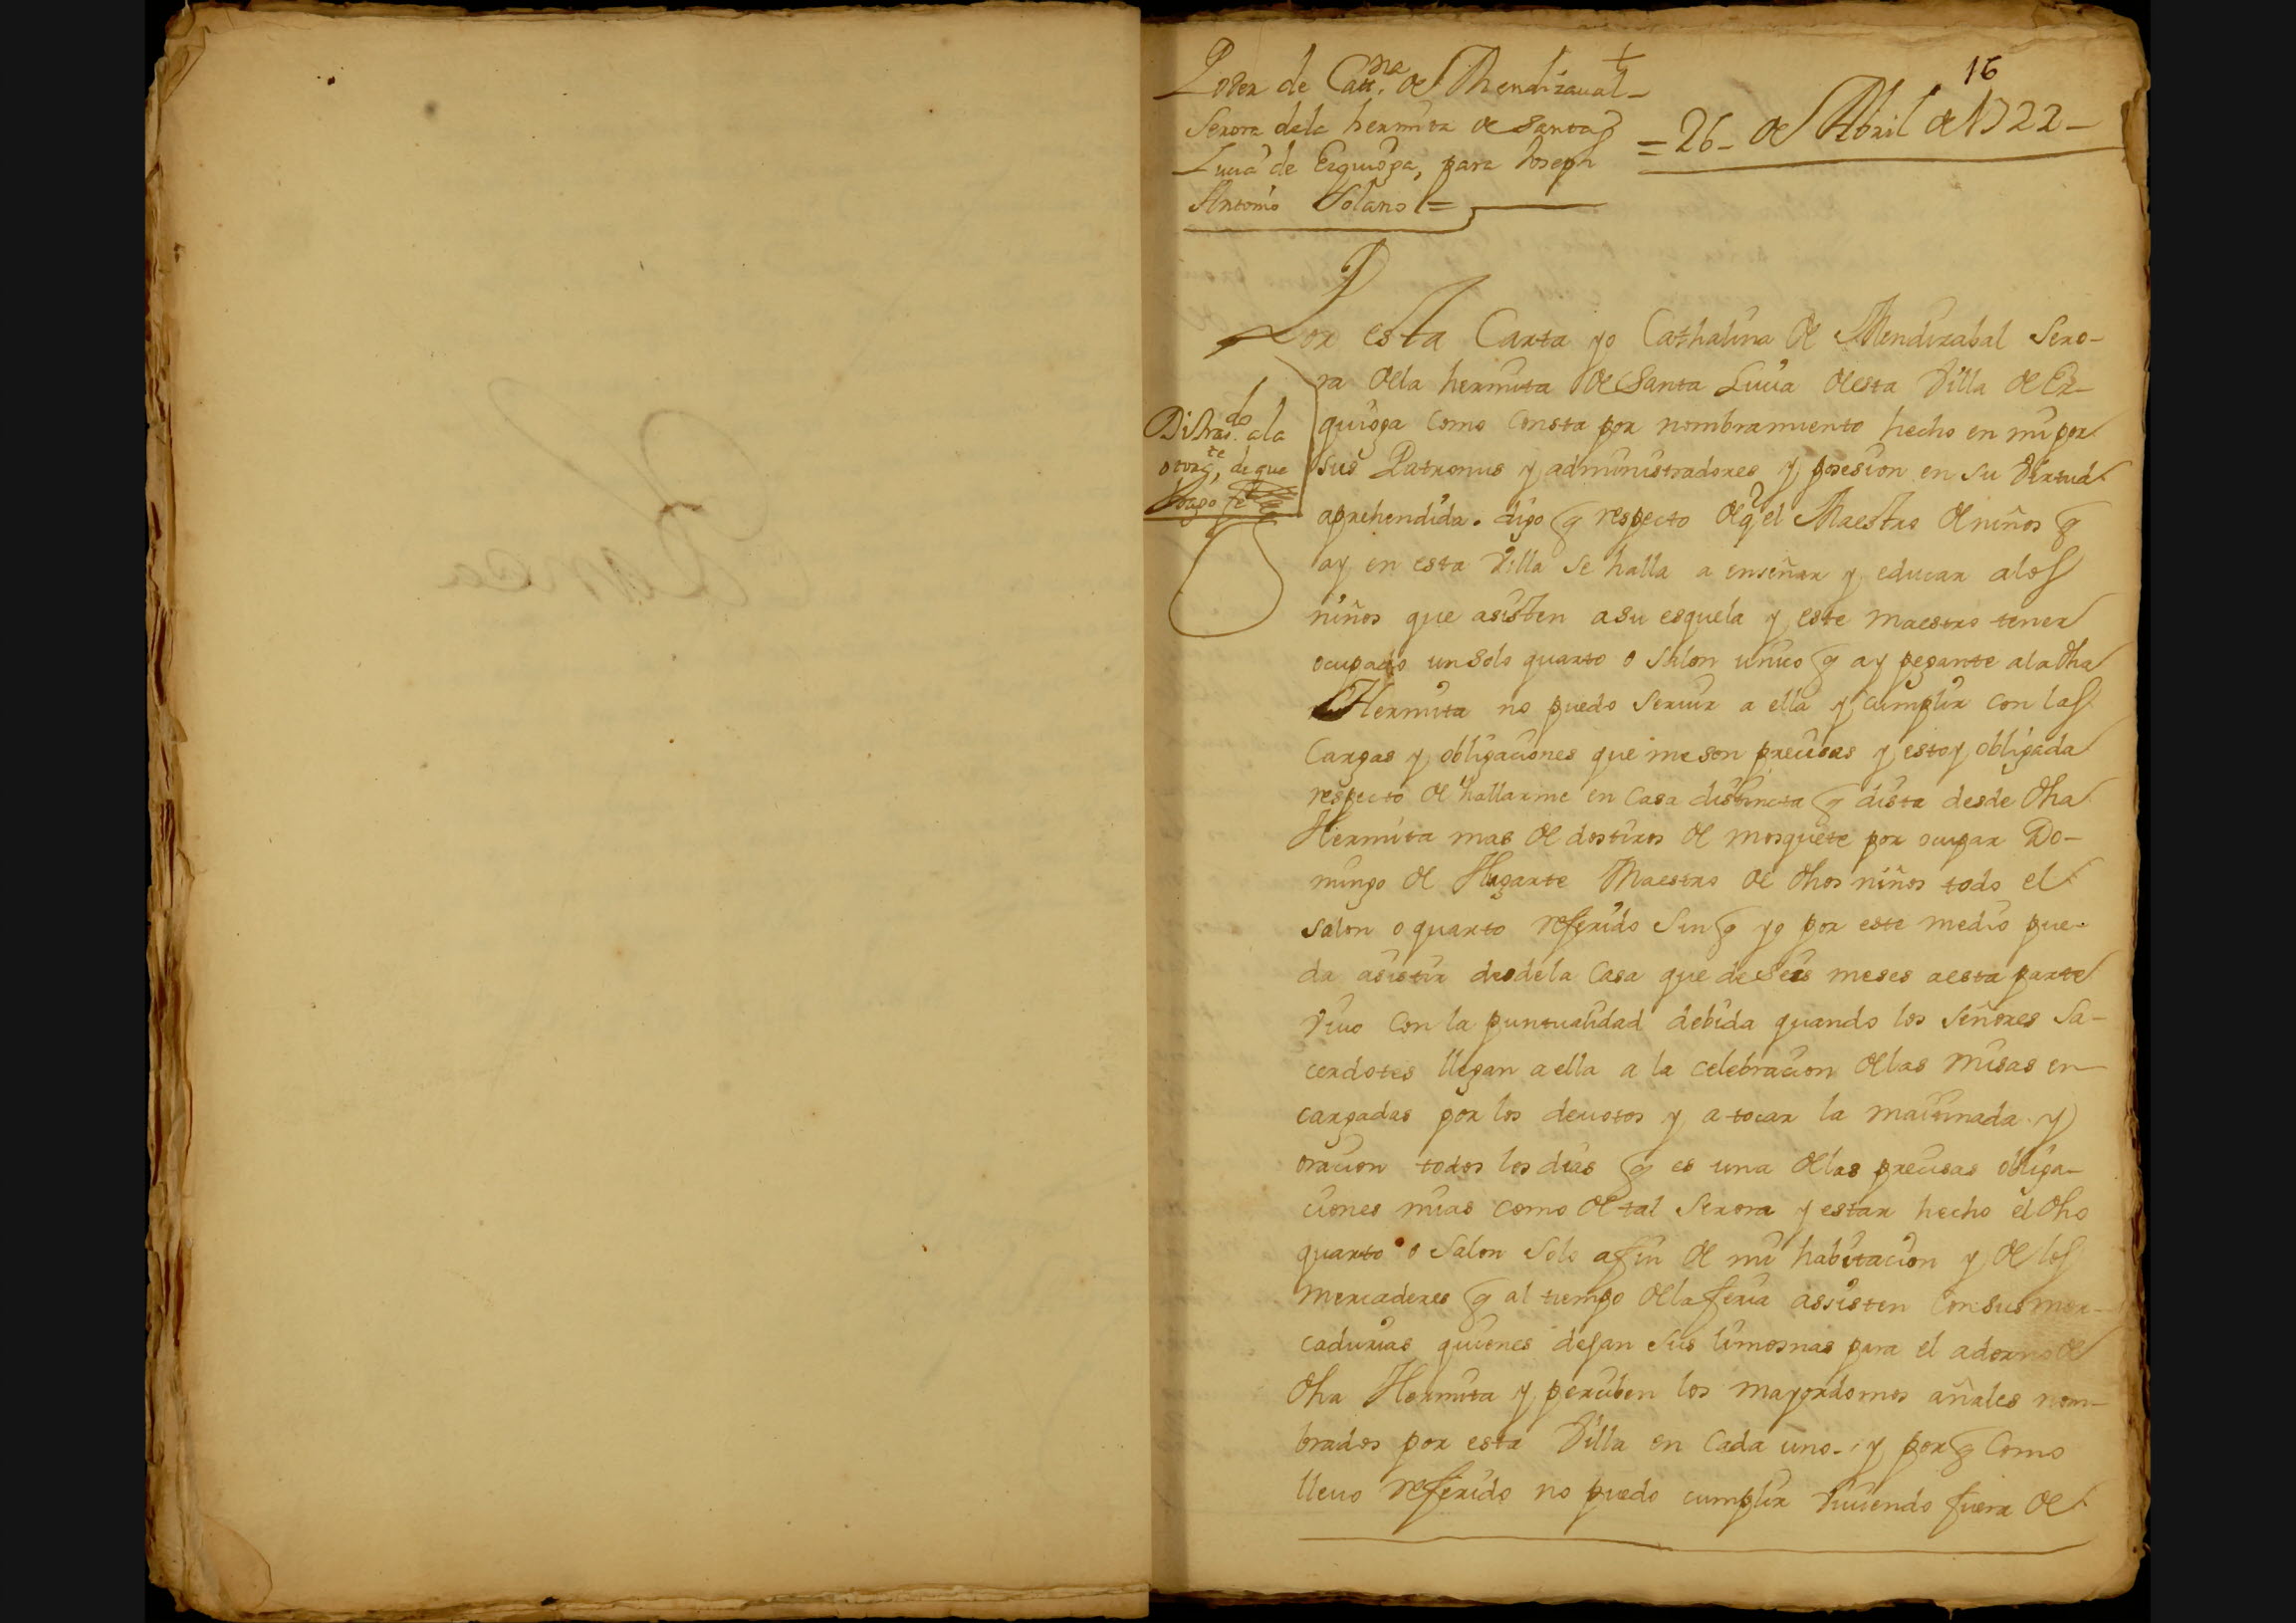 16
Poder de Catt.na de Mendizaual
Serora dela hermita de Santa
Lucia de Ezquioga, para Joseph
Antonio Solano =
= 26 - de Abril de 1722 -
Por esta Carta yo Cathalina de Mendizabal Sero-
ra della hermita de Santa Lucia desta Villa de Ez-
quioga como consta por nombramiento hecho en mi por
sus Patronus y administradores y posesion en su virtud
aprehendida. digo q respecto de q el Maestro de niños q
ay en esta Villa se halla a enseñar y educar alos
niños que asisten asu esquela y este maestro tener
ocupado un Solo quarto o salon unico q ay pegante ala dha
Hermita no puedo Seruir a ella y cumplir con las
Cargas y obligaciones que me son precisas y estoy obligada
respecto de hallarme en Casa distincta q dista desde dha
Hermita mas de dos tiros de mosquete por ocupar Do-
mingo de Hugarte Maestro de dhos niños todo el
salon o quarto referido Sin q yo por este medio pue-
da asistir desdela Casa que de Seis meses aesta parte
viuo Con la puntualidad debida quando los Señores Sa-
cerdotes llegan a ella a la celebracion dellas misas en
cargadas por los deuotos y a tocar la maitinada y
oracion todos los dias q es una dellas precisas obliga-
ciones mias como de tal Serora y estar hecho el dho
quarto o Salon Solo a fin de mi habitacion y de los
mercaderes q al tiempo dela feria assisten Con sus mer-
cadurias quienes dejan sus limosnas para el adorno de
dha Hermita y perciben los mayordomos añales nom-
brados por esta Villa en Cada uno. y por q Como
lleuo referido no puedo cumplir viuiendo fuera de
Distrai.do ala
otorg.te, de que
hago fe